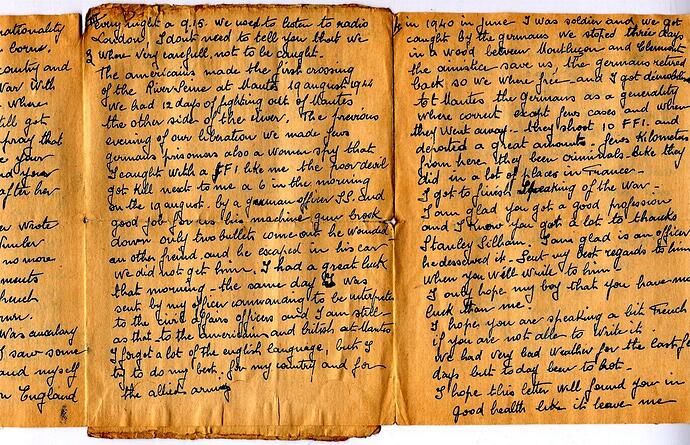 nationality
e borne.
country and
War With
Where
till got
pray that
e your
nd your
after her
er wrote
no more
ments
french
Was auxilary
I saw some
and myself
n England
Every night a 9.15. we used to listen to radio
London, I don't need to tell you that we
Where very carefull, not to be caught.
The americains made the first crossing
of the River Seine at Mantes 19 august 1944
We had 12 days of fighting out of Mantes
the other side of the river. The previous
evening of our liberation we made fews
germans prisoners also a Women spy that
I caught With a FFI like me the poor devil
got Kill next to me a 6 in the morning
on the 19 august. by a german officer S.S. and
good job for us his machine gun brook
down only two bullets come out he Wounded
an other friend, and he escaped in his car
we did not get him. I had a great luck
that morning - the same day I was
sent by my officer commanding to be interpreter
to the civil affairs officers and I am still
as that to the americains and british at Mantes
I forget a lot of the english language, but I
try to do my best. for my country and for
the allied army
in 1940 in June I was soldier and we got
caught by the germans we stoped three days
in a wood between Montluçon and Clermont
the aimistice save us, the germans retired
back so we where free and I got demobilised
to Mantes the germans as a generality
where correct except fews cases and when
they Went away - they shoot 10 FFI. and
a great amounts. fews Kilometers
from here they been criminals. like they
did in a lot of places in France -
I got to finish Speaking of the War -
I am glad you got a good profession
and I Know you got a lot to thanks
Stanley Silham. I am glad is an officer
he desserved it - Sent my best regards to him
When you Will Write to him
I only hope my boy that you have more
luck than me.
I hope you are speaking a bit French
if you are not able to Write it.
We had very bad Weather for the last few
days but today been to hot -
I hope this letter will found you in
good health like it leave me